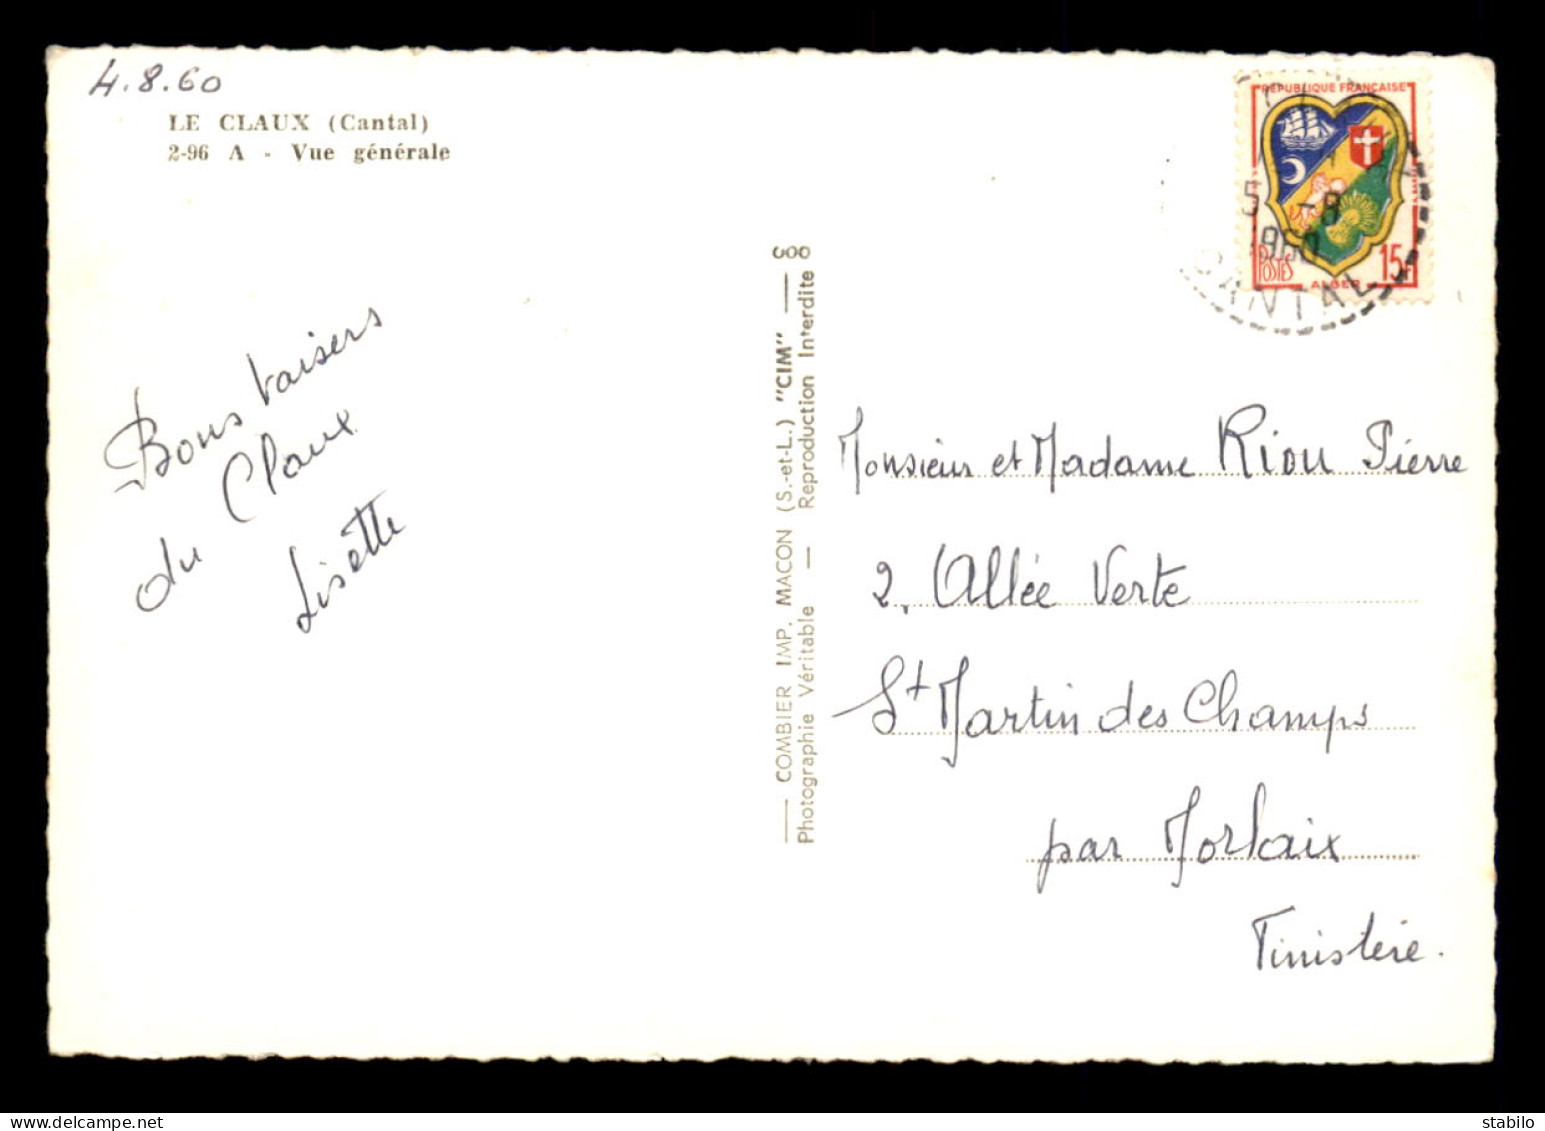 4.8.60
LE CLAUX (Cantal)
2-96 A - Vue générale
Bons baisers
du Claux
Lisette
COMBIER IMP. MACON (S.-et-L.) "CIM"
Photographie Véritable — Reproduction Interdite
RÉPUBLIQUE FRANÇAISE
POSTES
ALGER
15F
5 -8
1960
CANTAL
Monsieur et Madame Riou Pierre
2, Allée Verte
St Martin des Champs
par Morlaix
Finistère.
stabilo